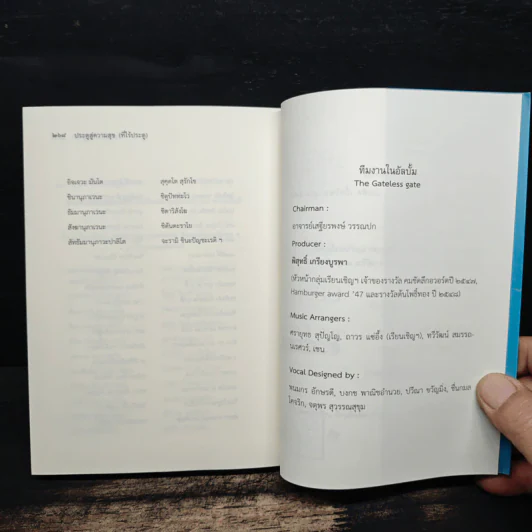 ๒๖๘ ประตูสู่ความสุข (ที่ไร้ประตู)
อิจเจวะ มันโต สุคุตโต สุรักโข
ชินานุภาเวนะ ชิตุปัททะโว
ธัมมานุภาเวนะ ชิตาริสังโฆ
สังฆานุภาเวนะ ชิตันตะราโย
สัทธัมมานุภาวะปาลิโต จะรามิ ชินะปัญชะเรติ ฯ
ทีมงานในอัลบั้ม
The Gateless gate
Chairman :
อาจารย์เสฐียรพงษ์ วรรณปก
Producer :
พิสุทธิ์ เกรียงบูรพา
(หัวหน้ากลุ่มเรียนเชิญฯ เจ้าของรางวัล คมชัดลึกอวอร์ดปี ๒๕๔๗,
Hamburger award '47 และรางวัลต้นโพธิ์ทอง ปี ๒๕๔๘)
Music Arrangers :
ศรายุทธ สุปัญโญ, ถาวร แซ่อึ้ง (เรียนเชิญฯ), ทวีวัฒน์ สมรรถ-
นเรศวร์, เชน
Vocal Designed by :
พนมกร อักษรดี, บงกช พาณิชอำนวย, ปวีณา ขวัญมิ่ง, ชื่นกมล
โคจริก, จตุพร สุวรรณสุขุม